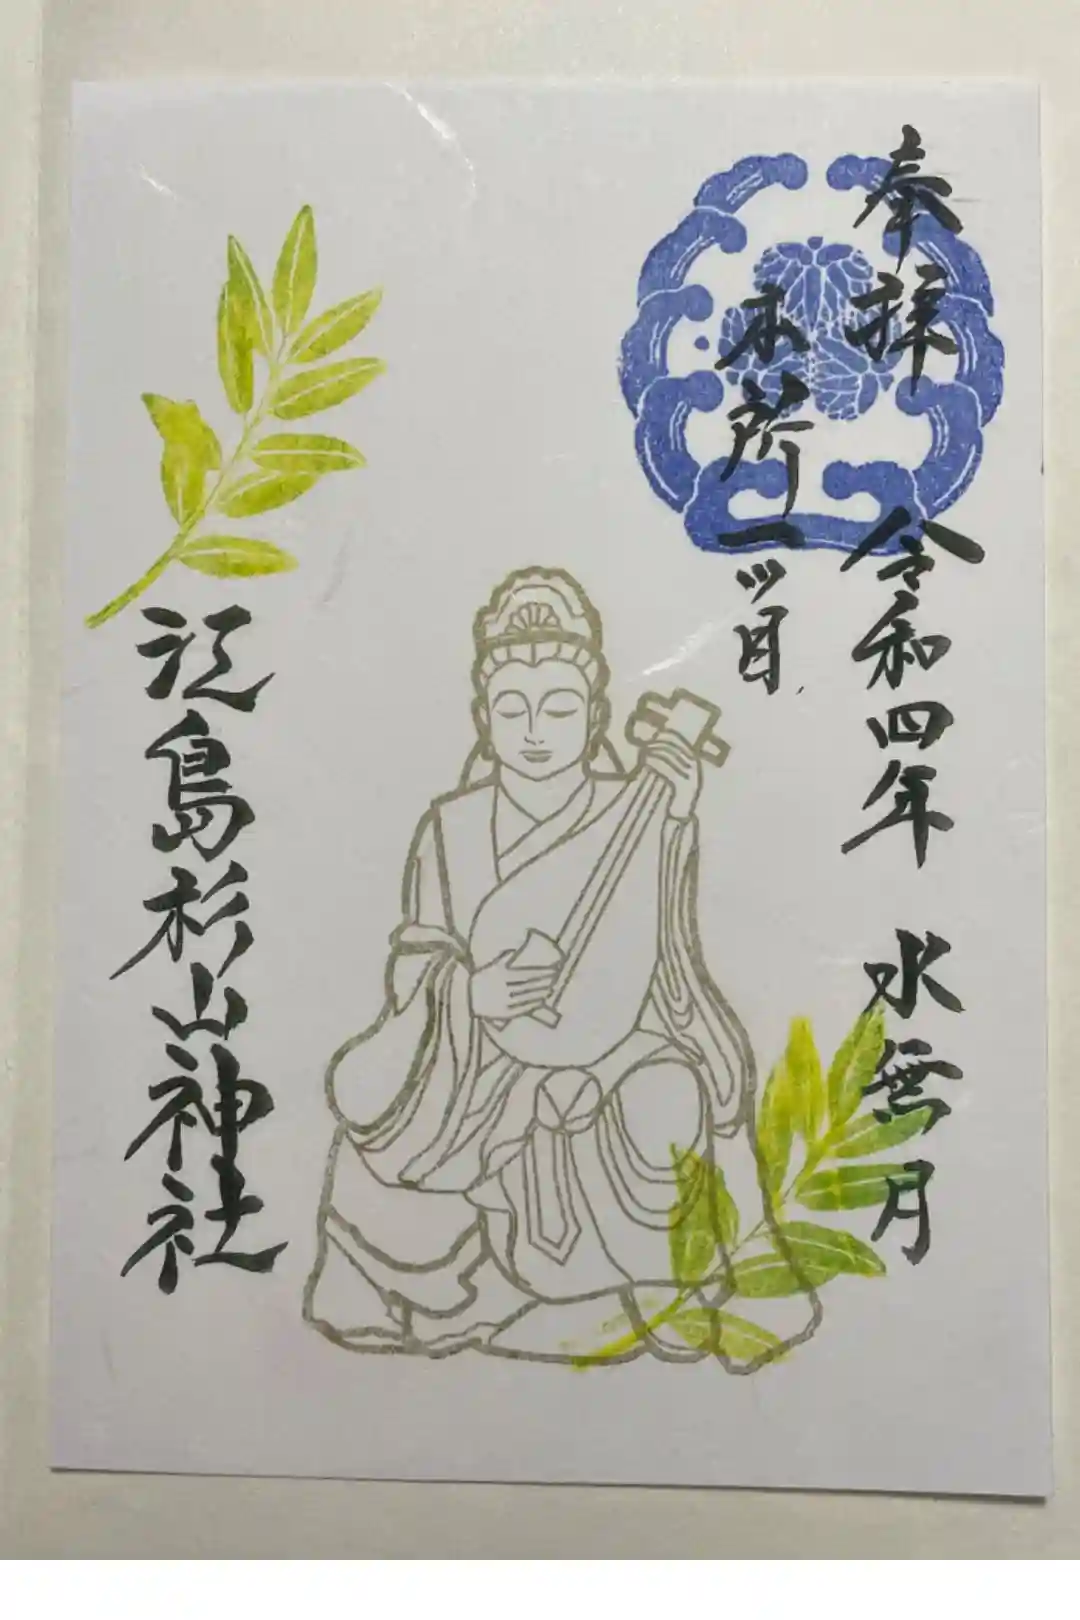 奉拝
令和四年 水無月
本所一ッ目
江島杉山神社